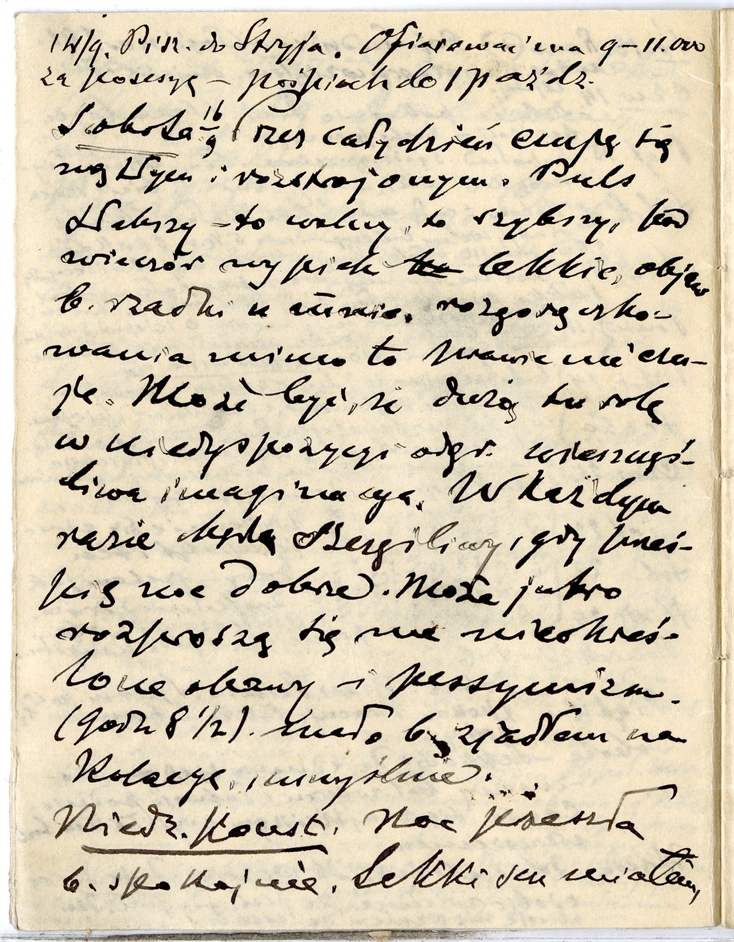 14/9. Pisz. do Stryja. Ofiarować ma 9–11.000
za posesyę – pośpiech do 1 paźdz.
Sobota 16/9 Przez cały dzień czuję się
wątłym i rozstrojonym. Puls
słabszy – to wolny, to szybszy, pod
wieczór wypiek lekki, objaw
b. rzadki u mnie. rozgorączko-
wania mimo to prawie nie czu-
ję. Może być, że dużą tu rolę
w niedyspozycyi odgr. wieszczyć-
liwa imaginacya. W każdym
razie będę szczęśliwy, gdy prześ-
pię noc dobrze. Może jutro
rozproszą się me nieokreś-
lone obawy i pessymizm.
(godz 8 1/2). mało b. zjadłem na
kolacyę, umyślnie.
Niedz. Noc przeszła
b. spokojnie. Lekki sen miałem,